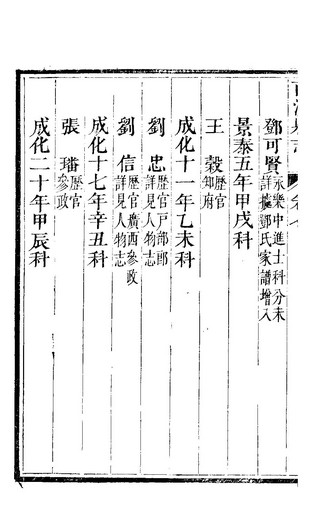 鄧可賢永樂中進士科分未詳據鄧氏家譜增入
景泰五年甲戌科
王　穀歷官知府
成化十一年乙未科
劉　忠歷官戶部郎詳見人物志
劉　信歷官廣西參政詳見人物志
成化十七年辛丑科
張　璿歷官參政
成化二十年甲辰科